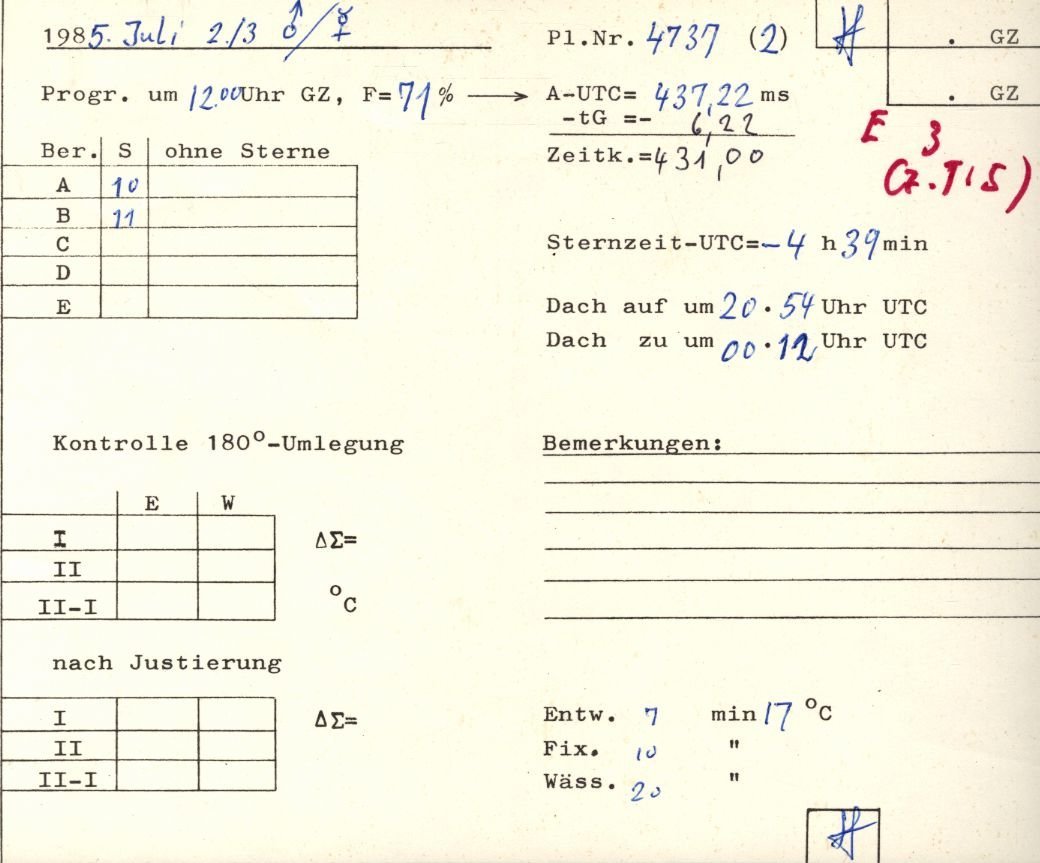 1985. Juli 2./3 ♂/☿
Pl.Nr. 4737 (2)
. GZ
Progr. um 12.00 Uhr GZ, F=71% → A-UTC= 437,22 ms
. GZ
-tG =- 6,22
Zeitk.=431,00
E 3
(z.TIS)
Ber. S ohne Sterne
A 10
B 11
C
D
E
Sternzeit-UTC=-4 h 39 min
Dach auf um 20.54 Uhr UTC
Dach zu um 00.12 Uhr UTC
Kontrolle 180°-Umlegung
E W
I ΔΣ=
II
II-I °C
Bemerkungen:
nach Justierung
I ΔΣ=
II
II-I
Entw. 7 min 17 °C
Fix. 10 "
Wäss. 20 "